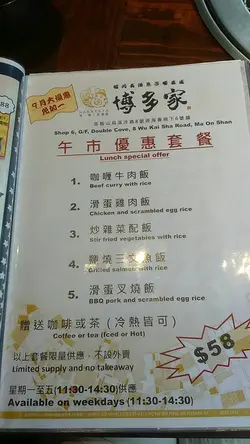 9月大優惠
博多家
Shop 6, G/F, Double Cove, 8 Wu Kai Sha Road, Ma On Shan
午市優惠套餐
Lunch special offer
1. 咖喱牛肉飯
Beef curry with rice
2. 滑蛋雞肉飯
Chicken and scrambled egg rice
3. 炒雜菜配飯
Stir fried vegetables with rice
4. 鹽燒三文魚飯
Grilled salmon with rice
5. 滑蛋叉燒飯
BBQ pork and scrambled egg rice
贈送咖啡或茶(冷熱皆可)
Coffee or tea (Iced or Hot)
$58
以上套餐限量供應,不設外賣
Limited supply and no takeaway
星期一至五(11:30-14:30)供應
Available on weekdays (11:30-14:30)